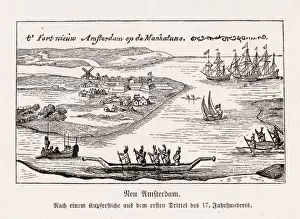 t' Fort nieuw Amsterdam op de Manhatans.
Neu Amsterdam.
Nach einem Kupferstiche aus dem ersten Drittel des 17. Jahrhunderts.